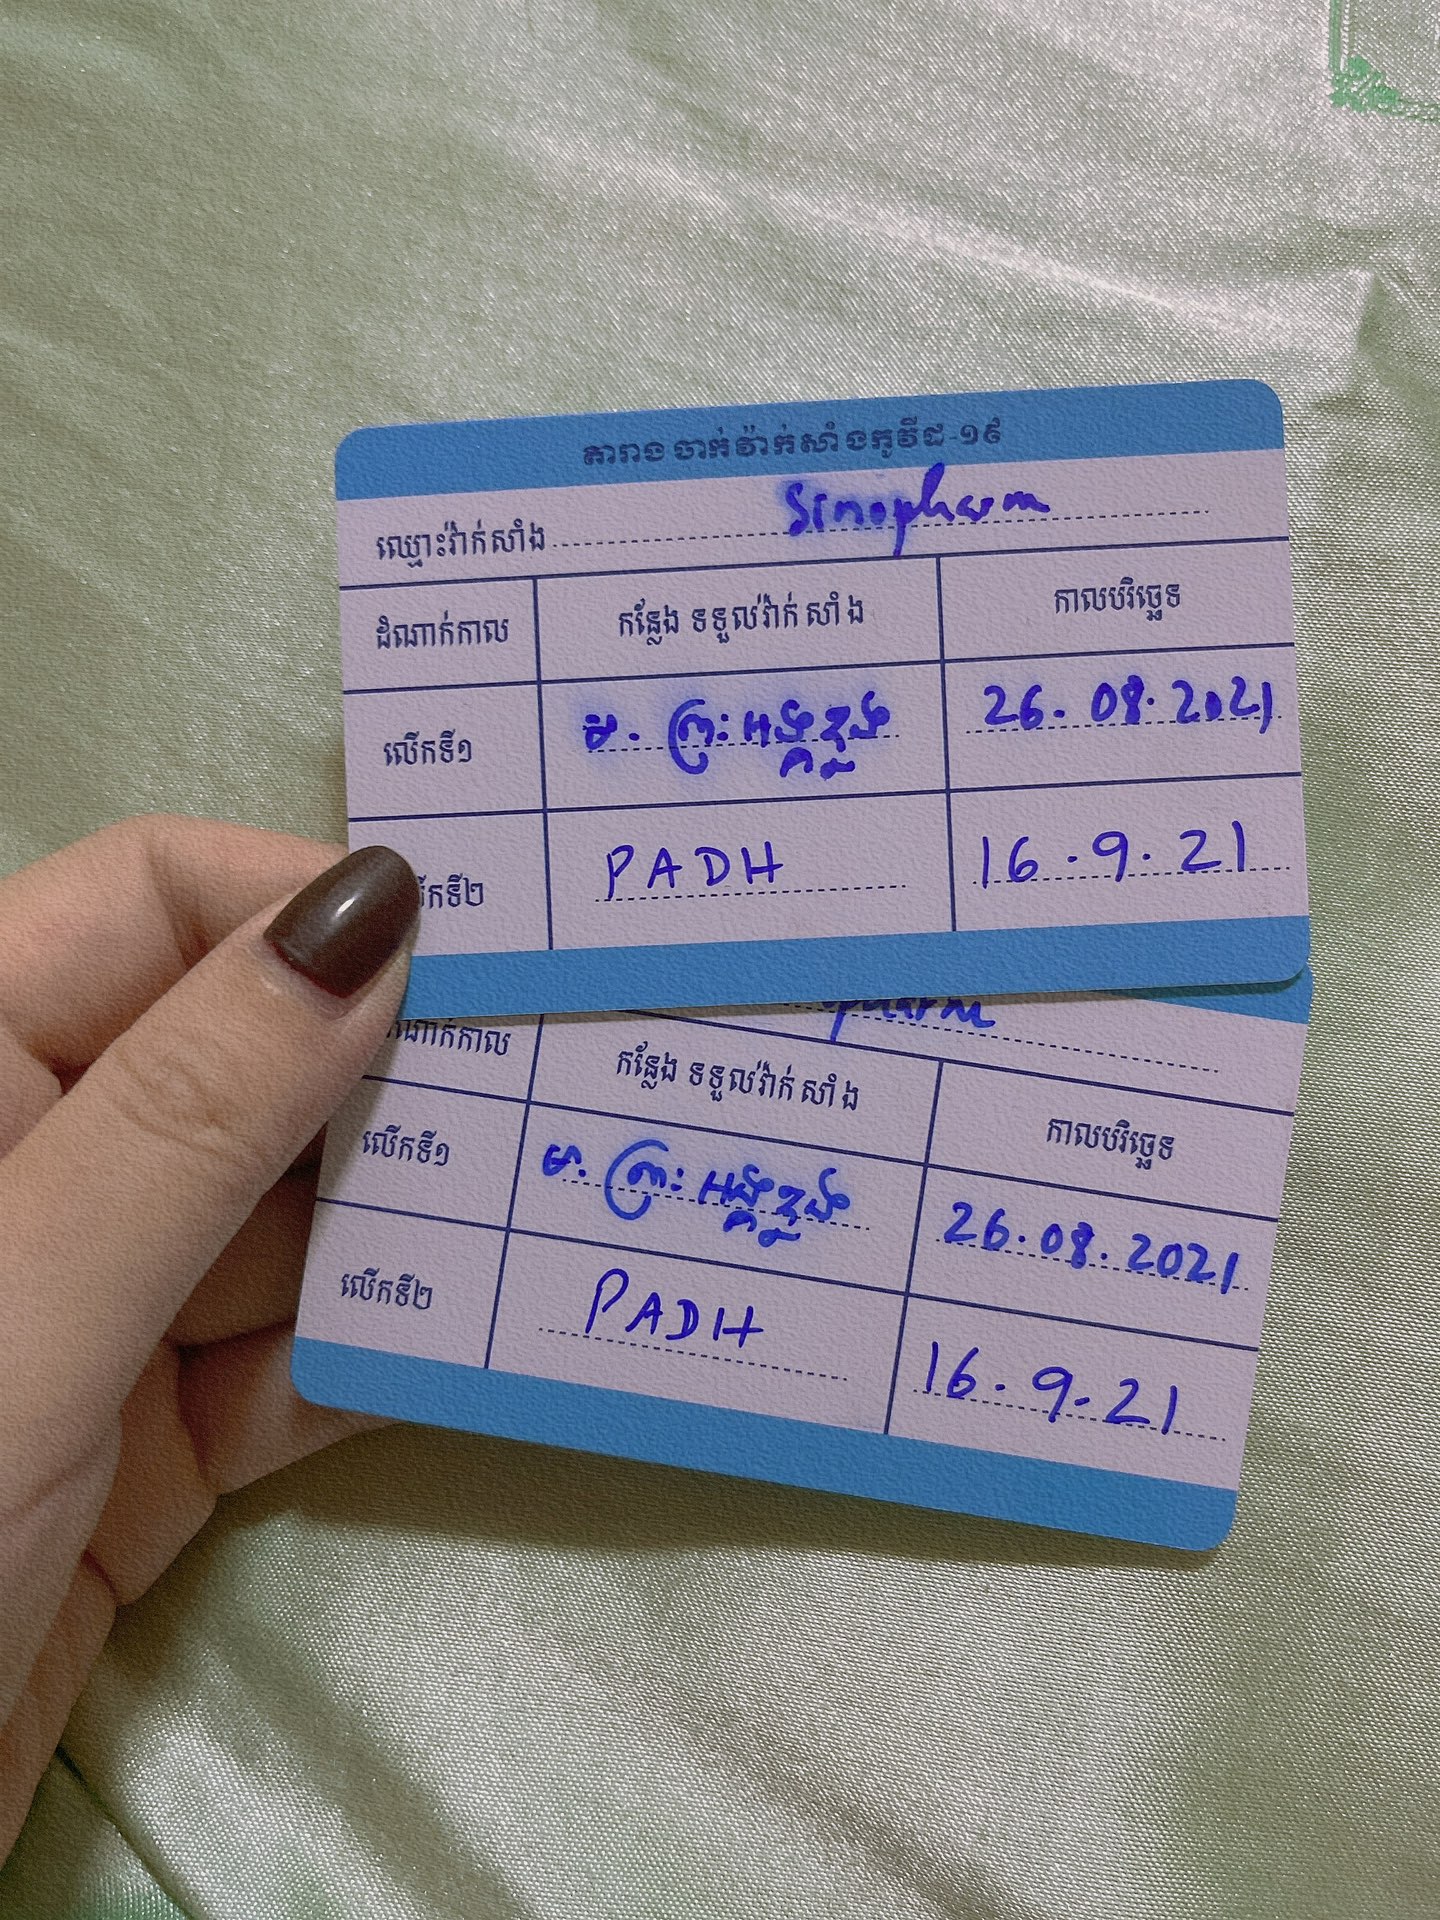 តារាងចាក់វ៉ាក់សាំងកូវីដ-១៩
ឈ្មោះវ៉ាក់សាំង Sinopharm
ដំណាក់កាល កន្លែងទទួលវ៉ាក់សាំង កាលបរិច្ឆេទ
លើកទី១ ម. ព្រះអង្គឌួង 26.08.2021
លើកទី២ PADH 16.9.21
pharm
ដំណាក់កាល កន្លែងទទួលវ៉ាក់សាំង កាលបរិច្ឆេទ
លើកទី១ ម. ព្រះអង្គឌួង 26.08.2021
លើកទី២ PADH 16.9.21